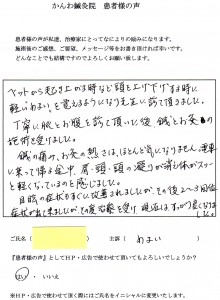 かんわ鍼灸院　患者様の声
患者様の声が私達、治療家にとってなによりの励みになります。
施術後のご感想、ご要望、メッセージ等をお書き頂ければ幸いです。
どんなことでも結構ですのでよろしくお願い致します。
ベットから起き上がる時など頭を上げ下げする時に
軽いめまいを覚えるようになり先生に診て頂きました。
丁寧に脈とお腹を診て頂いた後 鍼とお灸の
施術を受けました。
鍼の痛み、お灸の熱さは、ほとんど気になりません。電車
に乗って帰る途中 肩・頭・頸の凝りが消え体がスーッ
と軽くなっているのを感じました。
目眩の症状もすぐに改善されましたが、その後2～3回
症状が出て来ましたがその度治療を受け 現在は すっかり良くなりま
した。
ご氏名（　　　　　）　主訴（　めまい　）
『患者様の声』としてHP・広告で使わせて頂いてもよろしいでしょうか？
はい ・ いいえ
※HP・広告で使わせて頂く際にはご氏名をイニシャルに変更いたします。